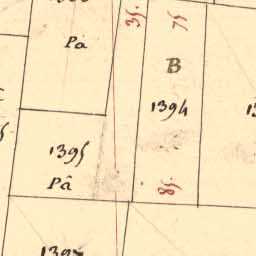 Pa
35.
75
B
1394
1395
Pâ
85.